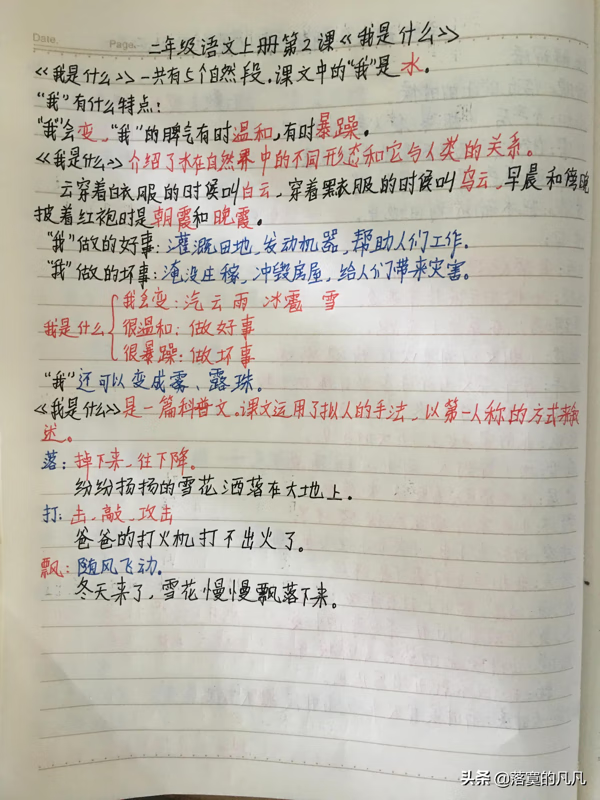 Date.
Page.
二年级语文上册第2课《我是什么》
《我是什么》一共有5个自然段。课文中的"我"是水。
"我"有什么特点：
"我"会变，"我"的脾气有时温和，有时暴躁。
《我是什么》介绍了水在自然界中的不同形态和它与人类的关系。
云穿着白衣服的时候叫白云，穿着黑衣服的时候叫乌云，早晨和傍晚
披着红袍时是朝霞和晚霞。
"我"做的好事：灌溉田地，发动机器，帮助人们工作。
"我"做的坏事：淹没庄稼，冲毁房屋，给人们带来灾害。
我会变：汽 云 雨 冰雹 雪
我是什么 很温和：做好事
很暴躁：做坏事
"我"还可以变成雾、露珠。
《我是什么》是一篇科普文。课文运用了拟人的手法，以第一人称的方式来叙
述。
落：掉下来，往下降。
纷纷扬扬的雪花洒落在大地上。
打：击、敲、攻击
爸爸的打火机打不出火了。
飘：随风飞动。
冬天来了，雪花慢慢飘落下来。
头条 @落寞的凡凡